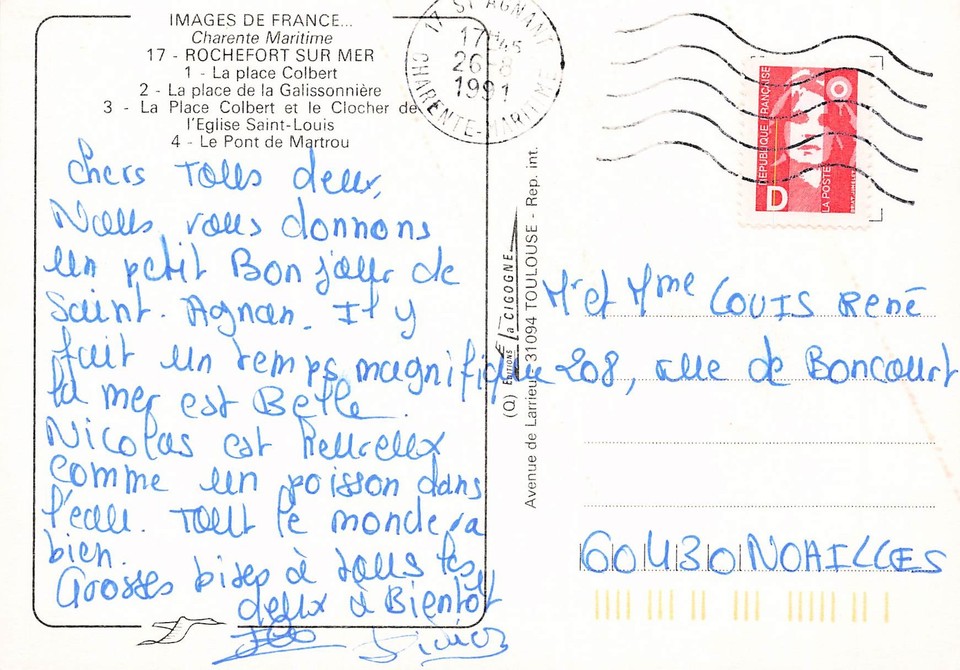 IMAGES DE FRANCE...
Charente Maritime
17 - ROCHEFORT SUR MER
1 - La place Colbert
2 - La place de la Galissonnière
3 - La Place Colbert et le Clocher de
l'Eglise Saint-Louis
4 - Le Pont de Martrou
Chers Tous deux,
Nous vous donnons
un petit Bonjour de
Saint. Agnan. Il y
fait un temps magnifique
la mer est Belle.
Nicolas est heureux
comme un poisson dans
l'eau. Tout le monde va
bien.
Grosses bises à tous les
deux à Bientôt
17 ST AGNANT
17H45
26-8
1991
CHARENTE-MARITIME
RÉPUBLIQUE FRANÇAISE
D
LA POSTE
(Q) ÉDITIONS la CIGOGNE
Avenue de Larrieu 31094 TOULOUSE - Rep. int.
Mr et Mme LOUIS René
208, rue de Boncourt
60430 NOAILLES